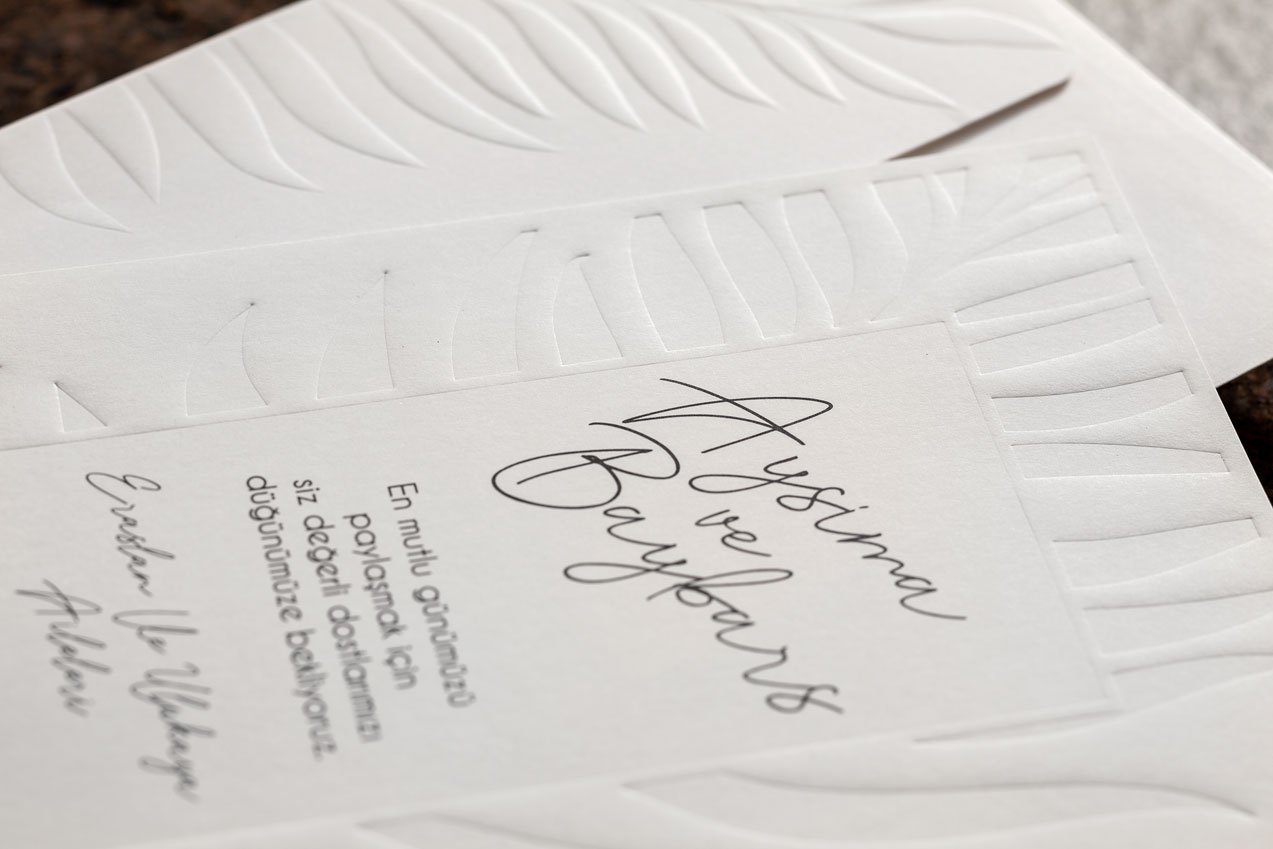 Aysima
ve
Baybars
En mutlu günümüzü
paylaşmak için
siz değerli dostlarımızı
düğünümüze bekliyoruz.
Eraslan Ve Ulukaya
Aileleri